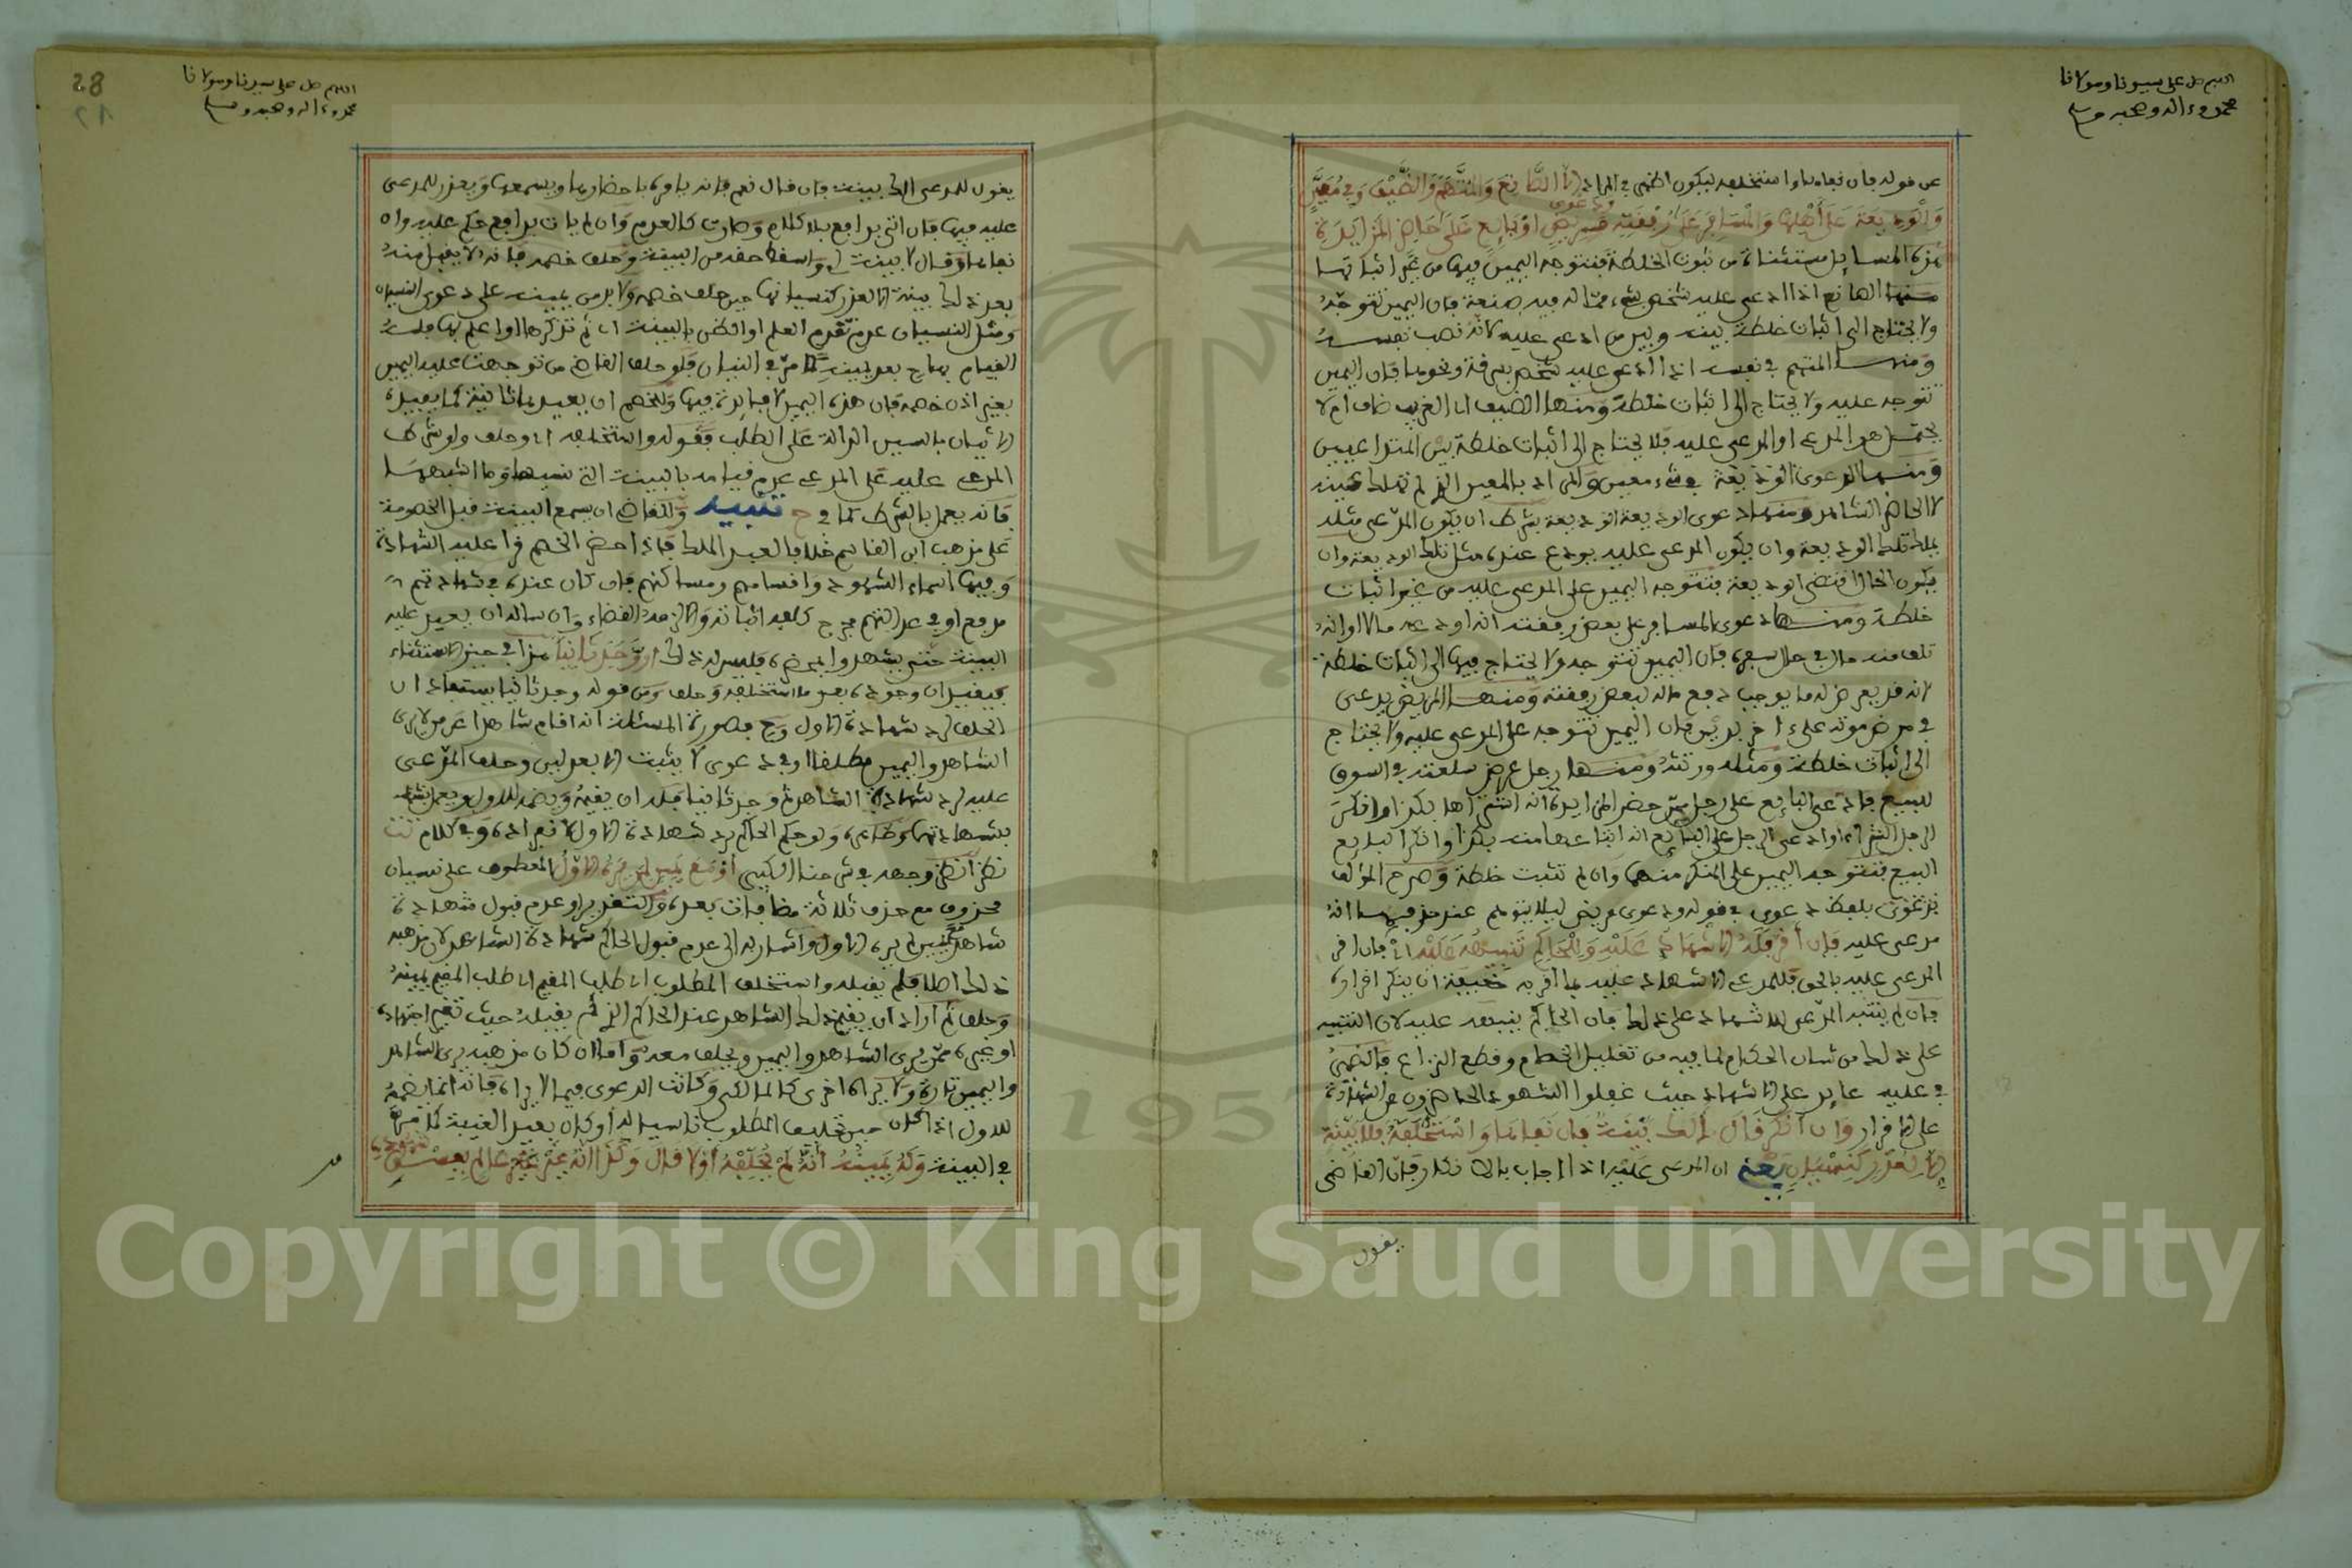 اللهم صل على سيدنا ومولانا
محمد وءاله وصحبه وسلم
عن قوله فإن نفاها واستحلفه ليكون اظهر في المراد إلا الصانع والمتهم والضيف وفي معين
والوديعة على أهلها والمسافر على رفقته ودعوى مريض أو بايع على حاضر المزايدة
هذه المسايل مستثناة من ثبوت الخلطة فتتوجه اليمين فيها من غير اثباتها
منها الصانع اذا ادعى عليه شخص بشيء مما له فيه صنعة فان اليمين تتوجه
ولا يحتاج الى اثبات خلطة بينه وبين من ادعى عليه لانه نصب نفسه
ومنها المتهم في نفسه اذا ادعى عليه شخص بسرقة ونحوها فان اليمين
تتوجه عليه ولا يحتاج الى اثبات خلطة ومنها الضيف اي الغريب ضاف ام لا
هو المدعي او المدعى عليه فلا يحتاج الى اثبات خلطة بين المتداعيين
ومنها الدعوى في شيء معين والمراد بالمعين الذي لم تهلك عينه
لا الحاضر المشاهد ومنها دعوى الوديعة بشرط ان يكون المدعي مثله
يملك تلك الوديعة وان يكون المدعى عليه يودع عنده مثل تلك الوديعة وان
يكون الحال اقتضى الوديعة فتتوجه اليمين على المدعى عليه من غير اثبات
خلطة ومنها دعوى المسافر على بعض رفقته انه اودعه مالا او انه
تلف منه مال في حال سفره فان اليمين تتوجه ولا يحتاج فيها الى اثبات خلطة
لانه قد يعرض له ما يوجب دفع ماله لبعض رفقته ومنها المريض يدعي
في مرض موته على ءاخر بدين فان اليمين تتوجه على المدعى عليه ولا يحتاج
الى اثبات خلطة ومثله ورثته ومنها رجل عرض سلعته في السوق
للبيع فادعى البايع على رجل ممن حضر المزايدة انه اشتراها بكذا وانكر
الرجل الشراء او ادعى الرجل على البايع انه ابتاعها منه بكذا وانكر البايع
البيع فتتوجه اليمين على المنكر منهما وان لم تثبت خلطة وصرح المؤلف
بلفظ دعوى في قوله ودعوى مريض ليلا يتوهم عند حذفها انه
مدعى عليه فإن أقر فله الإشهاد عليه وللحاكم تنبيهه عليه اي فان اقر
المدعى عليه بالحق فللمدعي الاشهاد عليه بما اقر به خيفة ان ينكر اقراره
فان لم ينتبه المدعي للاشهاد على ذلك فان الحاكم ينبهه عليه لان التنبيه
على ذلك من شان الحكام لما فيه من تقليل الخصام وقطع النزاع فالضمير
في عليه عايد على الاشهاد حيث غفلوا الشهود الحاضرون عن الشهادة
على الاقرار وإن أنكر قال ألك بينة فإن نفاها واستحلفه فلا بينة
إلا لعذر كنسيان يعني ان المدعى عليه اذا اجاب بالانكار فان القاضي
يقول
28
اللهم صل على سيدنا ومولانا
محمد وءاله وصحبه وسلم
يقول للمدعي الك بينة فان قال نعم فانه يامره باحضارها ويسمعها ويعذر للمدعى
عليه فيها فان اتى بدافع بلا كلام وصارت كالعدم وان لم يات بدافع حكم عليه وان
نفاها وقال لا بينة لي واسقط حقه من البينة وحلف خصمه فانه لا يقبل منه
بعد ذلك بينة الا لعذر كنسيانها حين حلف خصمه ولا بد من يمينه على دعوى النسيان
ومثل النسيان عدم تقدم العلم او الظن بالبينة اي ثم تذكرها او اعلم بها فله
القيام بها ح بعد يمينه كما مر في النسيان فلو حلف القاضي من توجهت عليه اليمين
بغير اذن خصمه فان هذه اليمين لا فايدة فيها وللخصم ان يعيدها ثانية كما يفيده
الاتيان بالسين الدالة على الطلب فقوله واستحلفه اي وحلف ولو شرط
المدعى عليه على المدعي عدم قيامه بالبينة التي نسيها وما اشبهها
فانه يعمل بالشرط كما في ح تنبيه وللقاضي ان يسمع البينة قبل الخصومة
على مذهب ابن القاسم خلافا لعبد الملك فاذا حضر الخصم قرا عليه الشهادة
وفيها اسماء الشهود وانسابهم ومساكنهم فان كان عنده في شهادتهم
مدفع او في عدالتهم مجرح كلفه اثباته والا لزمه القضاء وان ساله ان يعيد عليه
البينة حتى يشهدوا بمحضره فليس له ذلك أو وجد ثانيا هذا في حيز الاستثناء
فيفيد ان وجوده بعد ما استحلفه وحلف ومن قوله وجد ثانيا يستفاد ان
الحلف لرد شهادة الاول وح فصورة المسئلة انه اقام شاهدا عند من لا يرى
الشاهد واليمين مطلقا او في دعوى لا يثبت الا بعدلين وحلف المدعى
عليه لرد شهادة الشاهد ثم وجد ثانيا فله ان يقيمه ويضمه للاول ويعمل
بشهادتهما وظاهره ولو حكم الحاكم برد شهادة الاول لانفراده وفي كلام تت
نظر انظر وجهه في شرحنا الكبير أو مع يمين لم يره الأول المعطوف على نسيان
محذوف مع حذف ثلاثة مضافات بعده والتقدير او عدم قبول شهادة
شاهد مع يمين لم يره الاول واشار به الى عدم قبول الحاكم شهادة الشاهد لان مذهبه
ذلك اصلا فلم يقبله واستحلف المطلوب اي طلب المقيم اي طلب المقيم يمينه
وحلف ثم اراد ان يقيم ذلك الشاهد عند الحاكم الذي لم يقبله حيث تغير اجتهاده
او غيره ممن يرى الشاهد واليمين ويحلف معه واما ان كان مذهبه يرى الشاهد
واليمين تارة ولا يراه اخرى كالمالكي وكانت الدعوى فيما لا يراه فانه انما يضمه
للاول اذا كان حين تحليف المطلوب ناسيا له او كان بعيد الغيبة كما مر
في البينة وله يمينه أنه لم يحلفه أولا قال وكذا انه غير عالم بفسق شهوده